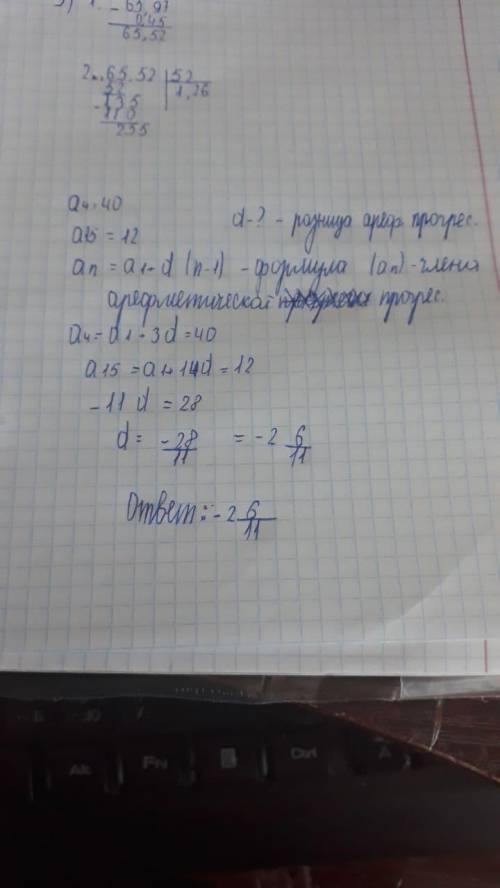 1. - 65,97
0,45
65,52
2. 65.52 | 52
52 1,26
- 135
110
255
a4 = 40
d-? - разница ареф. прогрес.
a15 = 12
an = a1 - d (n-1) - формула (an) - члена
арефметической прогрес.
a4 = a1 - 3d = 40
a15 = a1 + 14d = 12
-11d = 28
d = -28/11 = -2 6/11
Ответ: -2 6/11
Alt Fn Ctrl A